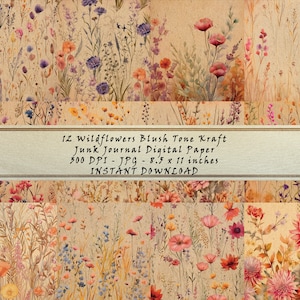 12 Wildflowers Blush Tone Kraft
Junk Journal Digital Paper
300 DPI - JPG - 8.5 x 11 inches
INSTANT DOWNLOAD